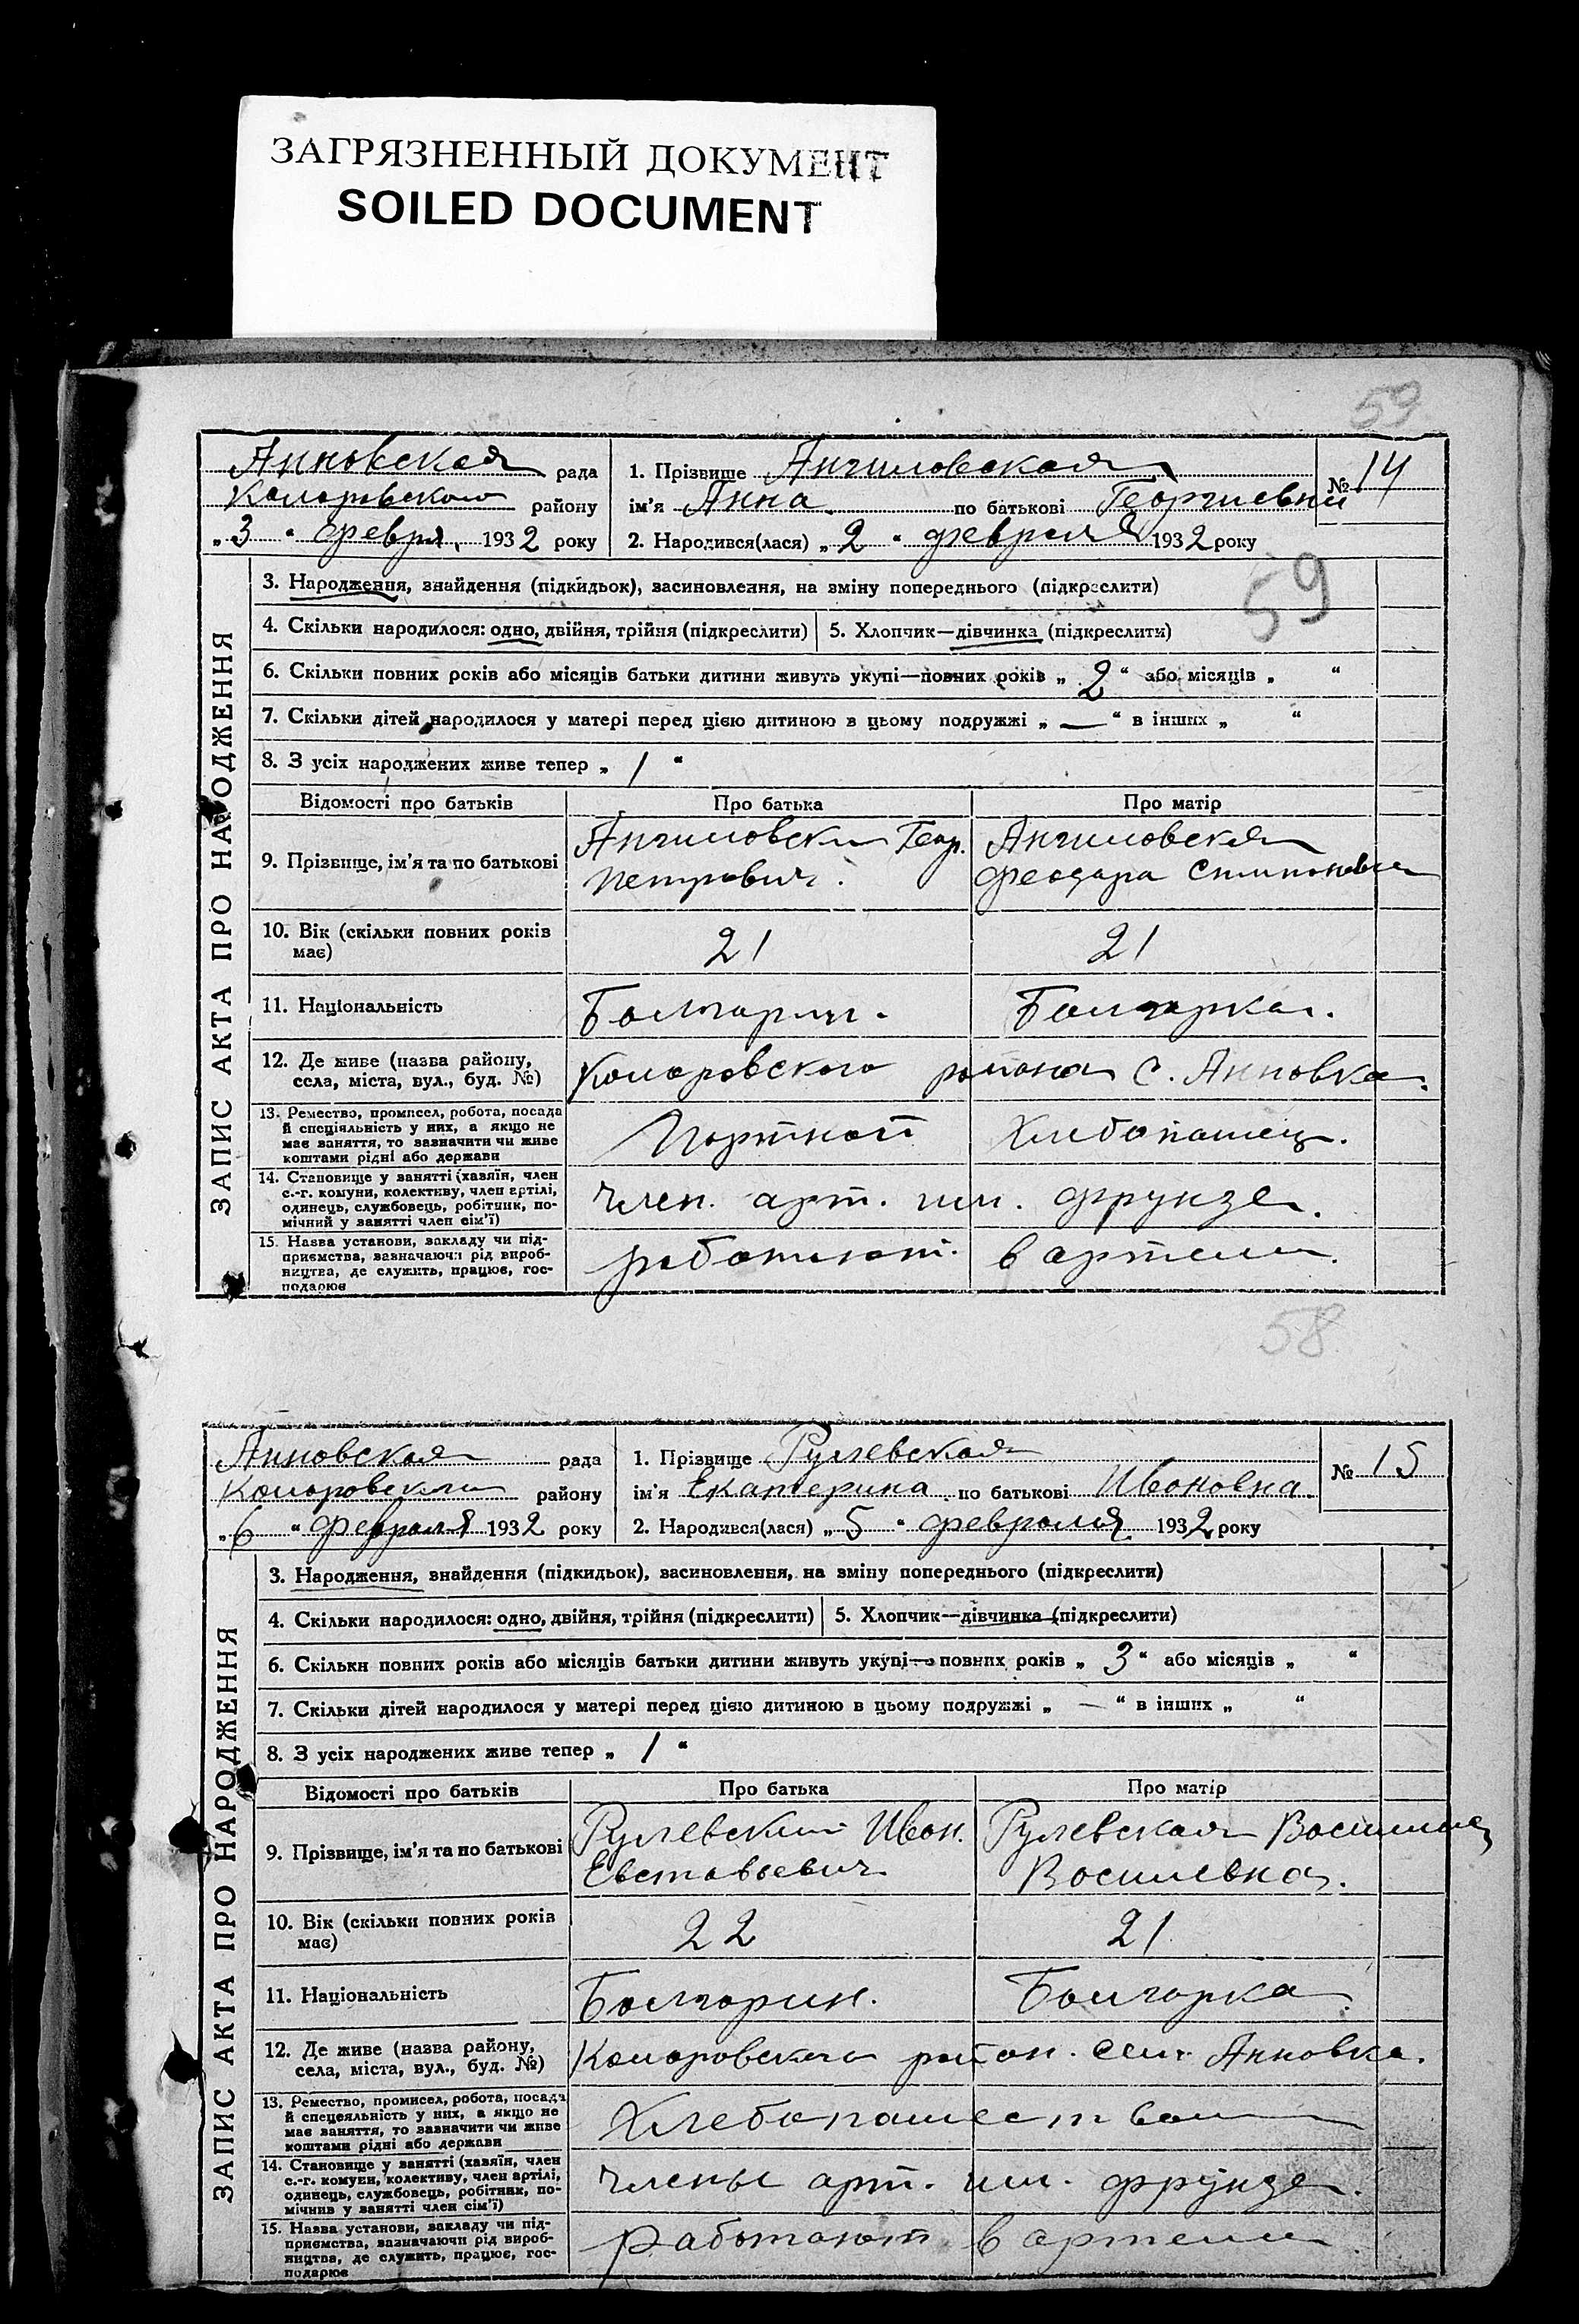 ЗАГРЯЗНЕННЫЙ ДОКУМЕНТ
SOILED DOCUMENT
59
Анновская рада
Коларовского району
„3“ февра. 1932 року
1. Прізвище Ангиловская
ім'я Анна по батькові Георгиевна
2. Народився(лася) „2“ февраля 1932 року
№ 14
59
ЗАПИС АКТА ПРО НАРОДЖЕННЯ
3. Народження, знайдення (підкидьок), засиновлення, на зміну попереднього (підкреслити)
4. Скільки народилося: одно, двійня, трійня (підкреслити) 5. Хлопчик—дівчинка (підкреслити)
6. Скільки повних років або місяців батьки дитини живуть укупі—повних років „2“ або місяців „ “
7. Скільки дітей народилося у матері перед цією дитиною в цьому подружжі „—“ в інших „ “
8. З усіх народжених живе тепер „1“
Відомості про батьків Про батька Про матір
9. Прізвище, ім'я та по батькові
Ангиловски Геор.
Петрович.
Ангиловская
Феодора
10. Вік (скільки повних років
має)
21 21
11. Національність Болгарин. Болгарка.
12. Де живе (назва району,
села, міста, вул., буд. №)
Коларовского района с. Анновка.
13. Ремество, промисел, робота, посада
й спеціяльність у них, а якщо не
має заняття, то зазначити чи живе
коштами рідні або держави
Портной Хлебопашец.
14. Становище у занятті (хазяїн, член
с.-г. комуни, колективу, член артілі,
одинець, службовець, робітник, по-
мічний у занятті член сім'ї)
член. арт. им. Фрунзе.
15. Назва установи, закладу чи під-
приємства, зазначаючи рід вироб-
ництва, де служить, працює, гос-
подарює
работают. в артели.
58
Анновская рада
Коларовского району
„6“ Февраля 1932 року
1. Прізвище Рулевская
ім'я Екатерина по батькові Ивановна.
2. Народився(лася) „5“ февраля 1932 року
№ 15
ЗАПИС АКТА ПРО НАРОДЖЕННЯ
3. Народження, знайдення (підкидьок), засиновлення, на зміну попереднього (підкреслити)
4. Скільки народилося: одно, двійня, трійня (підкреслити) 5. Хлопчик—дівчинка (підкреслити)
6. Скільки повних років або місяців батьки дитини живуть укупі—повних років „3“ або місяців „ “
7. Скільки дітей народилося у матері перед цією дитиною в цьому подружжі „—“ в інших „ “
8. З усіх народжених живе тепер „1“
Відомості про батьків Про батька Про матір
9. Прізвище, ім'я та по батькові
Рулевский Иван.
Евставьевич
Рулевская Василиса
Василевна.
10. Вік (скільки повних років
має)
22 21
11. Національність Болгарин. Болгарка.
12. Де живе (назва району,
села, міста, вул., буд. №)
Коларовского район. сел. Анновка.
13. Ремество, промисел, робота, посада
й спецеяльність у них, а якщо не
має заняття, то зазначити чи живе
коштами рідні або держави
Хлебопашество
14. Становище у занятті (хазяїн, член
с.-г. комуни, колективу, член артілі,
одинець, службовець, робітник, по-
мічник у занятті член сім'ї)
члены арт. им. Фрунзе.
15. Назва установи, закладу чи під-
приємства, зазначаючи рід вироб-
ництва, де служить, працює, гос-
подарює
Работают в артели